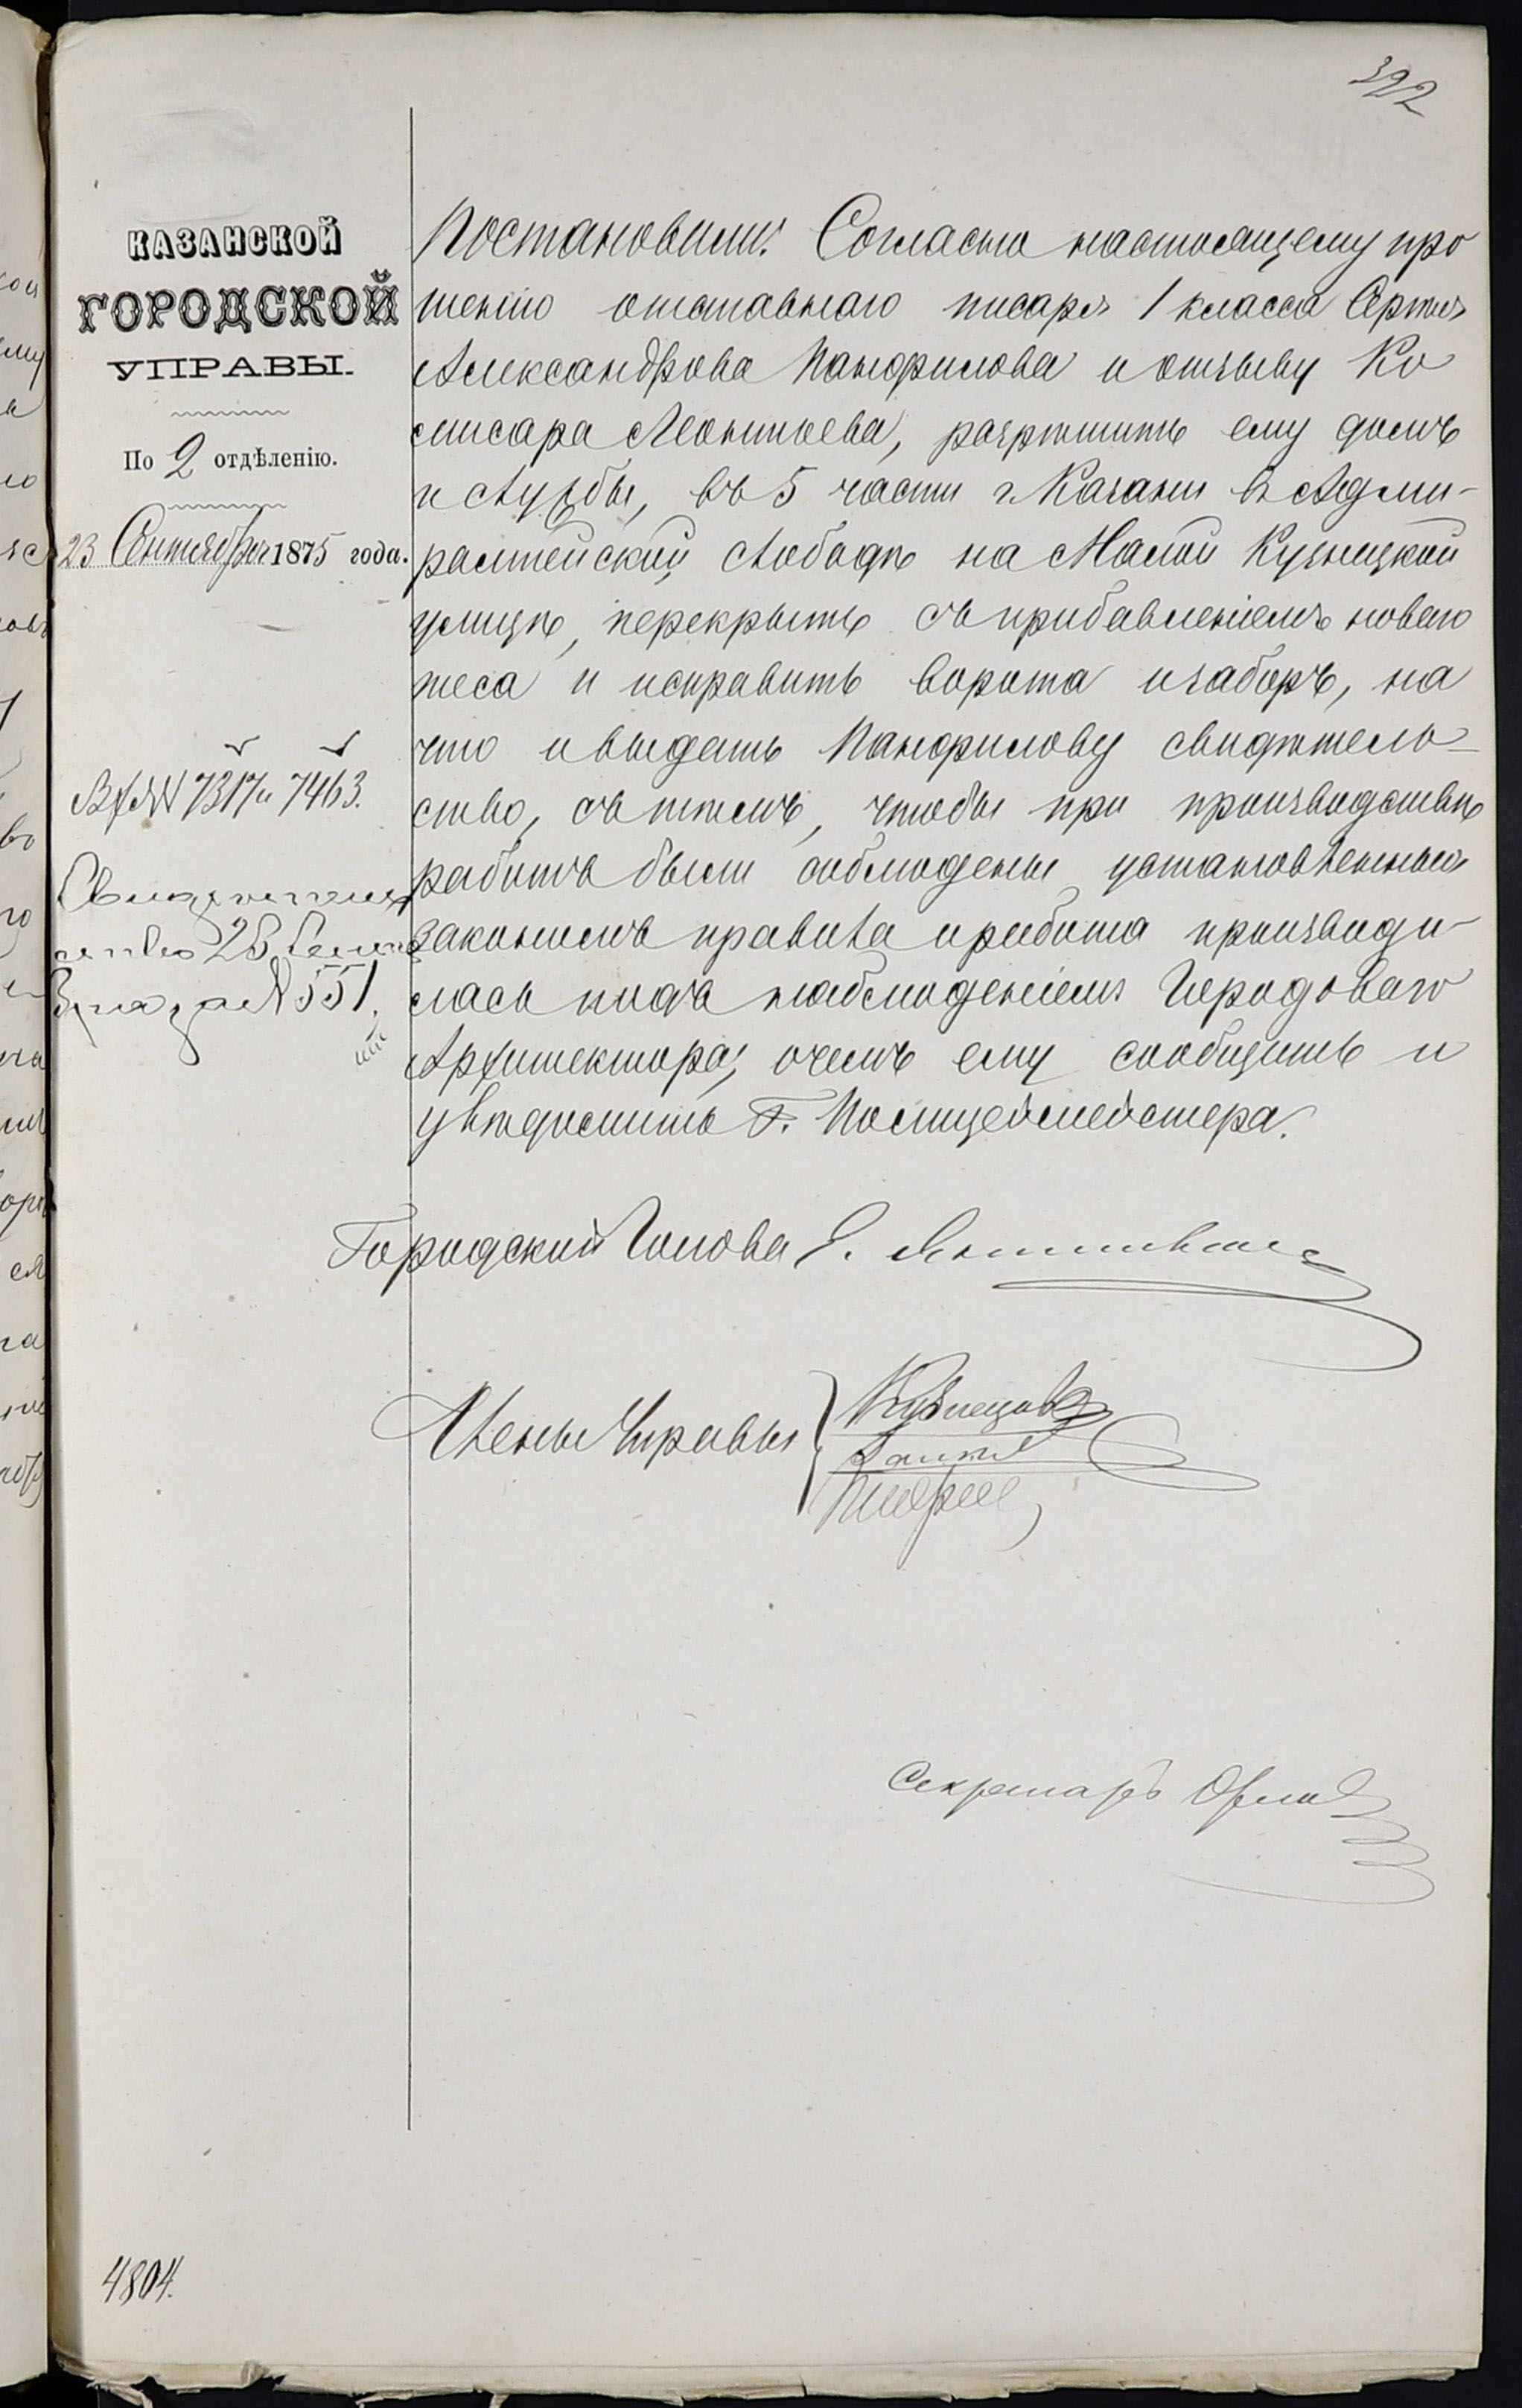 322
КАЗАНСКОЙ
ГОРОДСКОЙ
УПРАВЫ.
По 2 отдѣленію.
23 Сентября 1875 года.
Вх №№ 7317 и 7463.
№ 551.
Постановили: Согласно настоящему про
шенію отставнаго писаря 1 класса Сергѣя
Александрова Панфилова и отзыву Ко
мисара Леонтьева, разрѣшить ему домъ
и службы, въ 5 части г Казани въ Адми-
ралтейской слободѣ на Малой Кузнецкой
улицѣ, перекрыть съ прибавленіемъ новаго
теса и исправить ворота и заборъ, на
что и выдать Панфилову свидѣтель-
ство, съ тѣмъ, чтобы при производствѣ
работъ были соблюдены установленныя
закономъ правила и работа производи-
лась подъ наблюденіемъ Городоваго
Архитектора, о чемъ ему сообщить и
увѣдомить Г. Полицеймейстера.
Городской Голова
Члены Управы
Кузнецовъ
Секретарь Орловъ
4804.